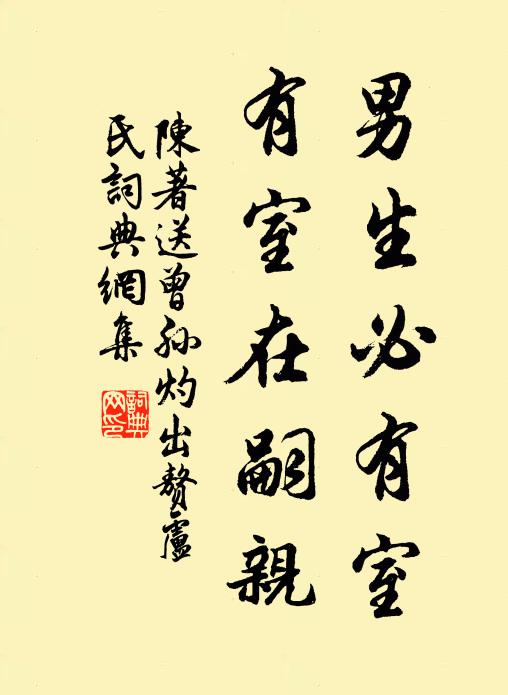 男生必有室
有室在嗣親
陳著送曾孫灼出贅盧
民詞典網集
詞典
网印